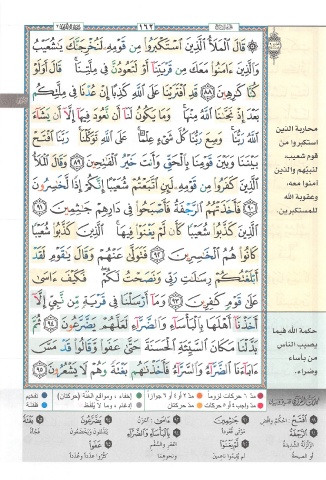 ١٦٢
قَالَ ٱلْمَلَأُ ٱلَّذِينَ ٱسْتَكْبَرُوا۟ مِن قَوْمِهِۦ لَنُخْرِجَنَّكَ يَـٰشُعَيْبُ
وَٱلَّذِينَ ءَامَنُوا۟ مَعَكَ مِن قَرْيَتِنَآ أَوْ لَتَعُودُنَّ فِى مِلَّتِنَا ۚ قَالَ أَوَلَوْ
كُنَّا كَـٰرِهِينَ ٨٨ قَدِ ٱفْتَرَيْنَا عَلَى ٱللَّهِ كَذِبًا إِنْ عُدْنَا فِى مِلَّتِكُم
بَعْدَ إِذْ نَجَّىٰنَا ٱللَّهُ مِنْهَا ۚ وَمَا يَكُونُ لَنَآ أَن نَّعُودَ فِيهَآ إِلَّآ أَن يَشَآءَ
ٱللَّهُ رَبُّنَا ۚ وَسِعَ رَبُّنَا كُلَّ شَىْءٍ عِلْمًا ۚ عَلَى ٱللَّهِ تَوَكَّلْنَا ۚ رَبَّنَا ٱفْتَحْ
بَيْنَنَا وَبَيْنَ قَوْمِنَا بِٱلْحَقِّ وَأَنتَ خَيْرُ ٱلْفَـٰتِحِينَ ٨٩ وَقَالَ ٱلْمَلَأُ
ٱلَّذِينَ كَفَرُوا۟ مِن قَوْمِهِۦ لَئِنِ ٱتَّبَعْتُمْ شُعَيْبًا إِنَّكُمْ إِذًا لَّخَـٰسِرُونَ
٩٠ فَأَخَذَتْهُمُ ٱلرَّجْفَةُ فَأَصْبَحُوا۟ فِى دَارِهِمْ جَـٰثِمِينَ ٩١
ٱلَّذِينَ كَذَّبُوا۟ شُعَيْبًا كَأَن لَّمْ يَغْنَوْا۟ فِيهَا ۚ ٱلَّذِينَ كَذَّبُوا۟ شُعَيْبًا
كَانُوا۟ هُمُ ٱلْخَـٰسِرِينَ ٩٢ فَتَوَلَّىٰ عَنْهُمْ وَقَالَ يَـٰقَوْمِ لَقَدْ
أَبْلَغْتُكُمْ رِسَـٰلَـٰتِ رَبِّى وَنَصَحْتُ لَكُمْ ۖ فَكَيْفَ ءَاسَىٰ
عَلَىٰ قَوْمٍ كَـٰفِرِينَ ٩٣ وَمَآ أَرْسَلْنَا فِى قَرْيَةٍ مِّن نَّبِىٍّ إِلَّآ
أَخَذْنَآ أَهْلَهَا بِٱلْبَأْسَآءِ وَٱلضَّرَّآءِ لَعَلَّهُمْ يَضَّرَّعُونَ ٩٤ ثُمَّ
بَدَّلْنَا مَكَانَ ٱلسَّيِّئَةِ ٱلْحَسَنَةَ حَتَّىٰ عَفَوا۟ وَّقَالُوا۟ قَدْ مَسَّ
ءَابَآءَنَا ٱلضَّرَّآءُ وَٱلسَّرَّآءُ فَأَخَذْنَـٰهُم بَغْتَةً وَهُمْ لَا يَشْعُرُونَ ٩٥
محاربة الذين
استكبروا من
قوم شعيب،
لنبيهم والذين
آمنوا معه،
وعقوبة الله
للمستكبرين.
حكمة الله فيما
يصيب الناس
من بأساء
وضراء.